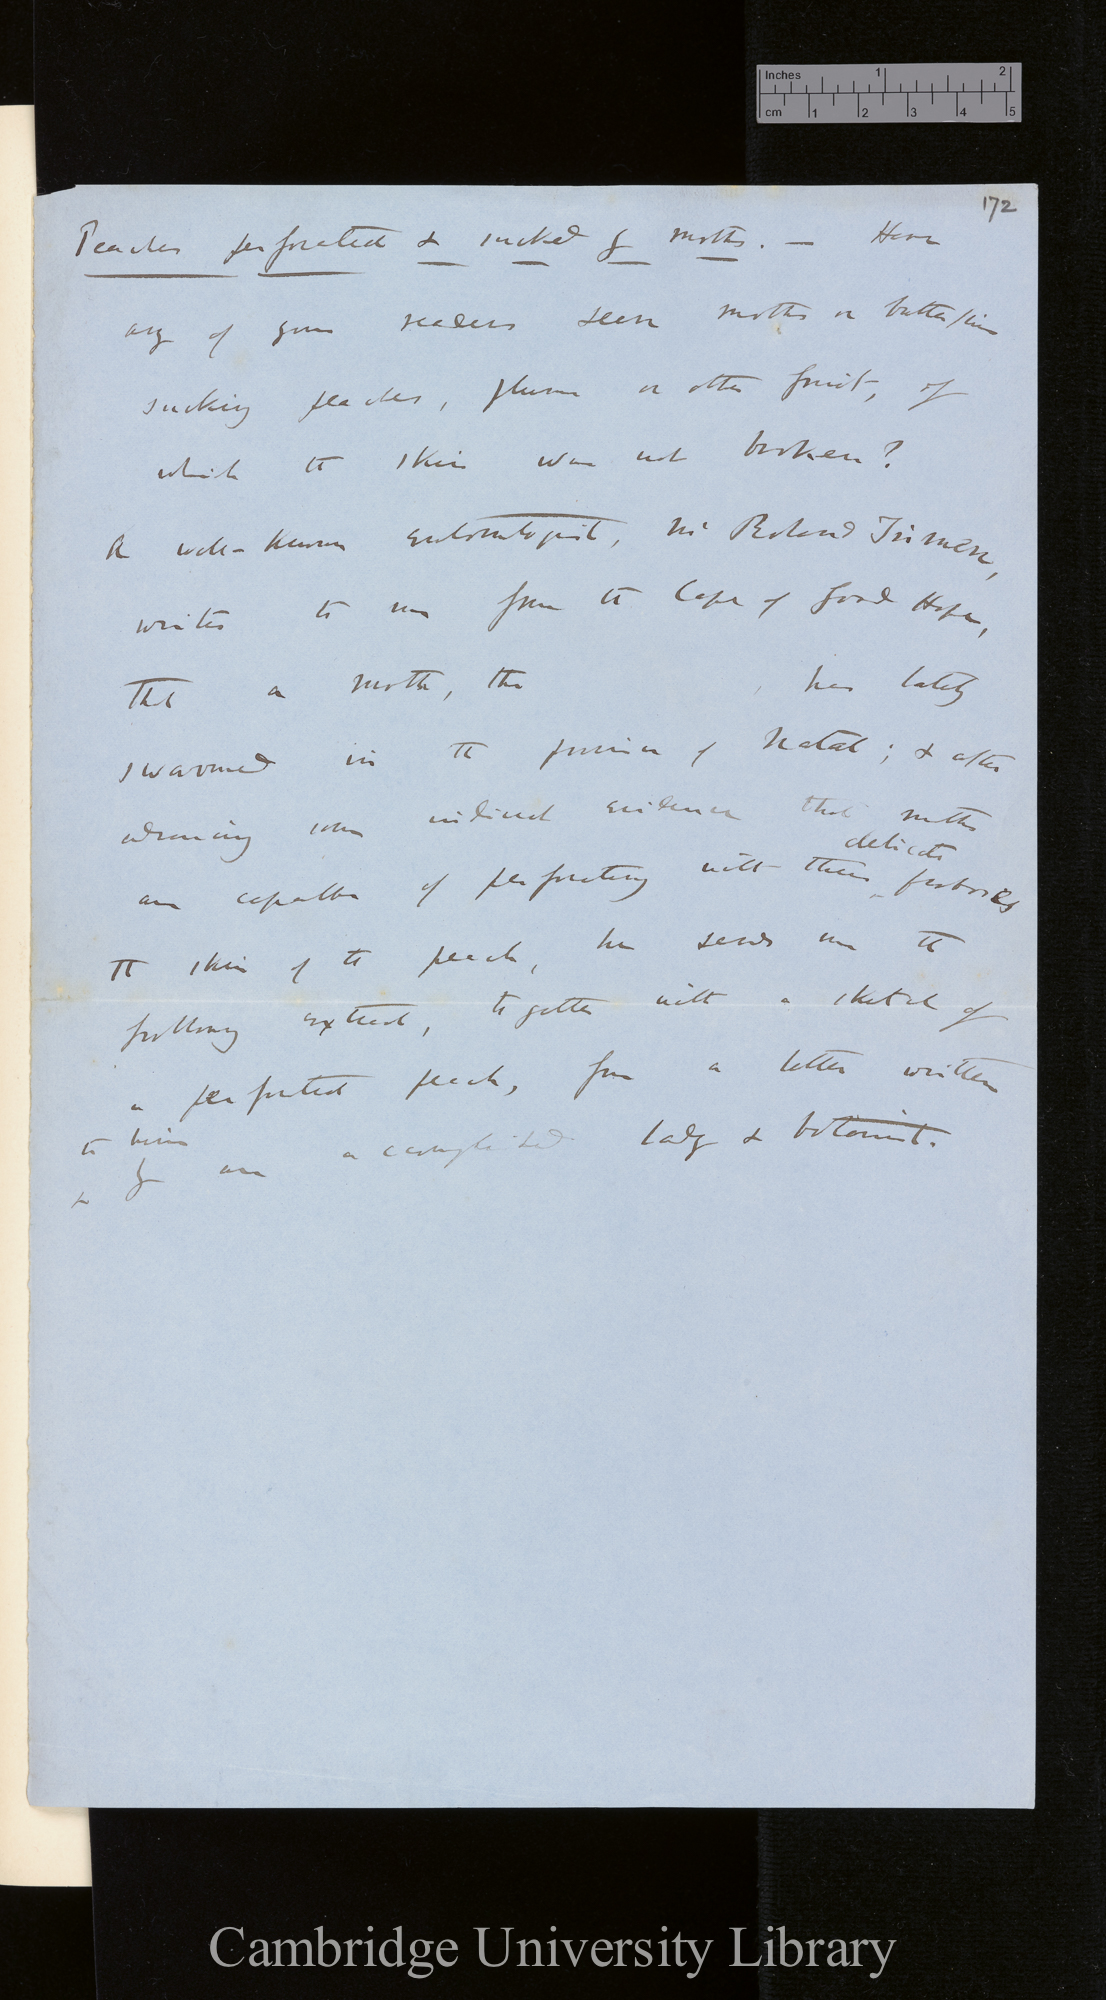 Inches 1 2
cm 1 2 3 4 5
172
Peaches perforated & sucked by moths. — Have
any of your readers seen moths or butterflies
sucking peaches, plums or other fruit, of
which the skin was not broken?
A well-known entomologist, Mr Roland Trimen,
writes to me from the Cape of Good Hope,
that a moth, the , has lately
swarmed in the province of Natal; & after
advancing some indirect evidence that moths
delicate
are capable of perforating with their proboscis
the skin of the peach, he sends me the
following extract, together with a sketch of
a perforated peach, from a letter written
to him
& by an accomplished lady & botanist.
Cambridge University Library